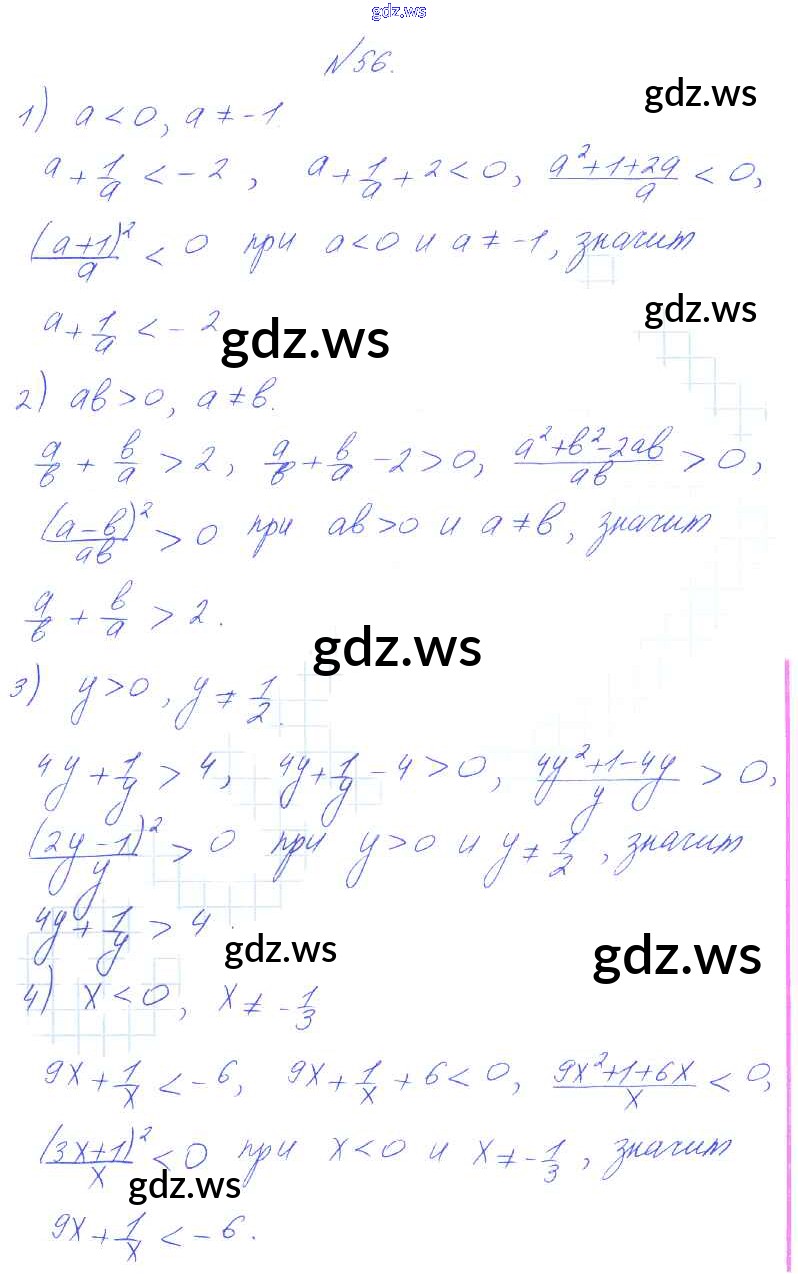 gdz.ws
№56.
gdz.ws
1) a < 0, a ≠ -1
a + 1/a < -2, a + 1/a + 2 < 0, (a²+1+2a)/a < 0,
(a+1)²/a < 0 при a<0 и a ≠ -1, значит
gdz.ws
a + 1/a < -2
gdz.ws
2) ав > 0, а ≠ в.
а/в + в/а > 2, а/в + в/а - 2 > 0, (а²+в²-2ав)/ав > 0,
(а-в)²/ав > 0 при ав>0 и а≠в, значит
а/в + в/а > 2.
gdz.ws
3) y>0, y ≠ 1/2.
4y + 1/y > 4, 4y + 1/y - 4 > 0, (4y²+1-4y)/y > 0,
(2y-1)²/y > 0 при y>0 и y ≠ 1/2, значит
4y + 1/y > 4.
gdz.ws
gdz.ws
4) x < 0, x ≠ -1/3
9x + 1/x < -6, 9x + 1/x + 6 < 0, (9x²+1+6x)/x < 0,
(3x+1)²/x < 0 при x<0 и x ≠ -1/3, значит
gdz.ws
9x + 1/x < -6.